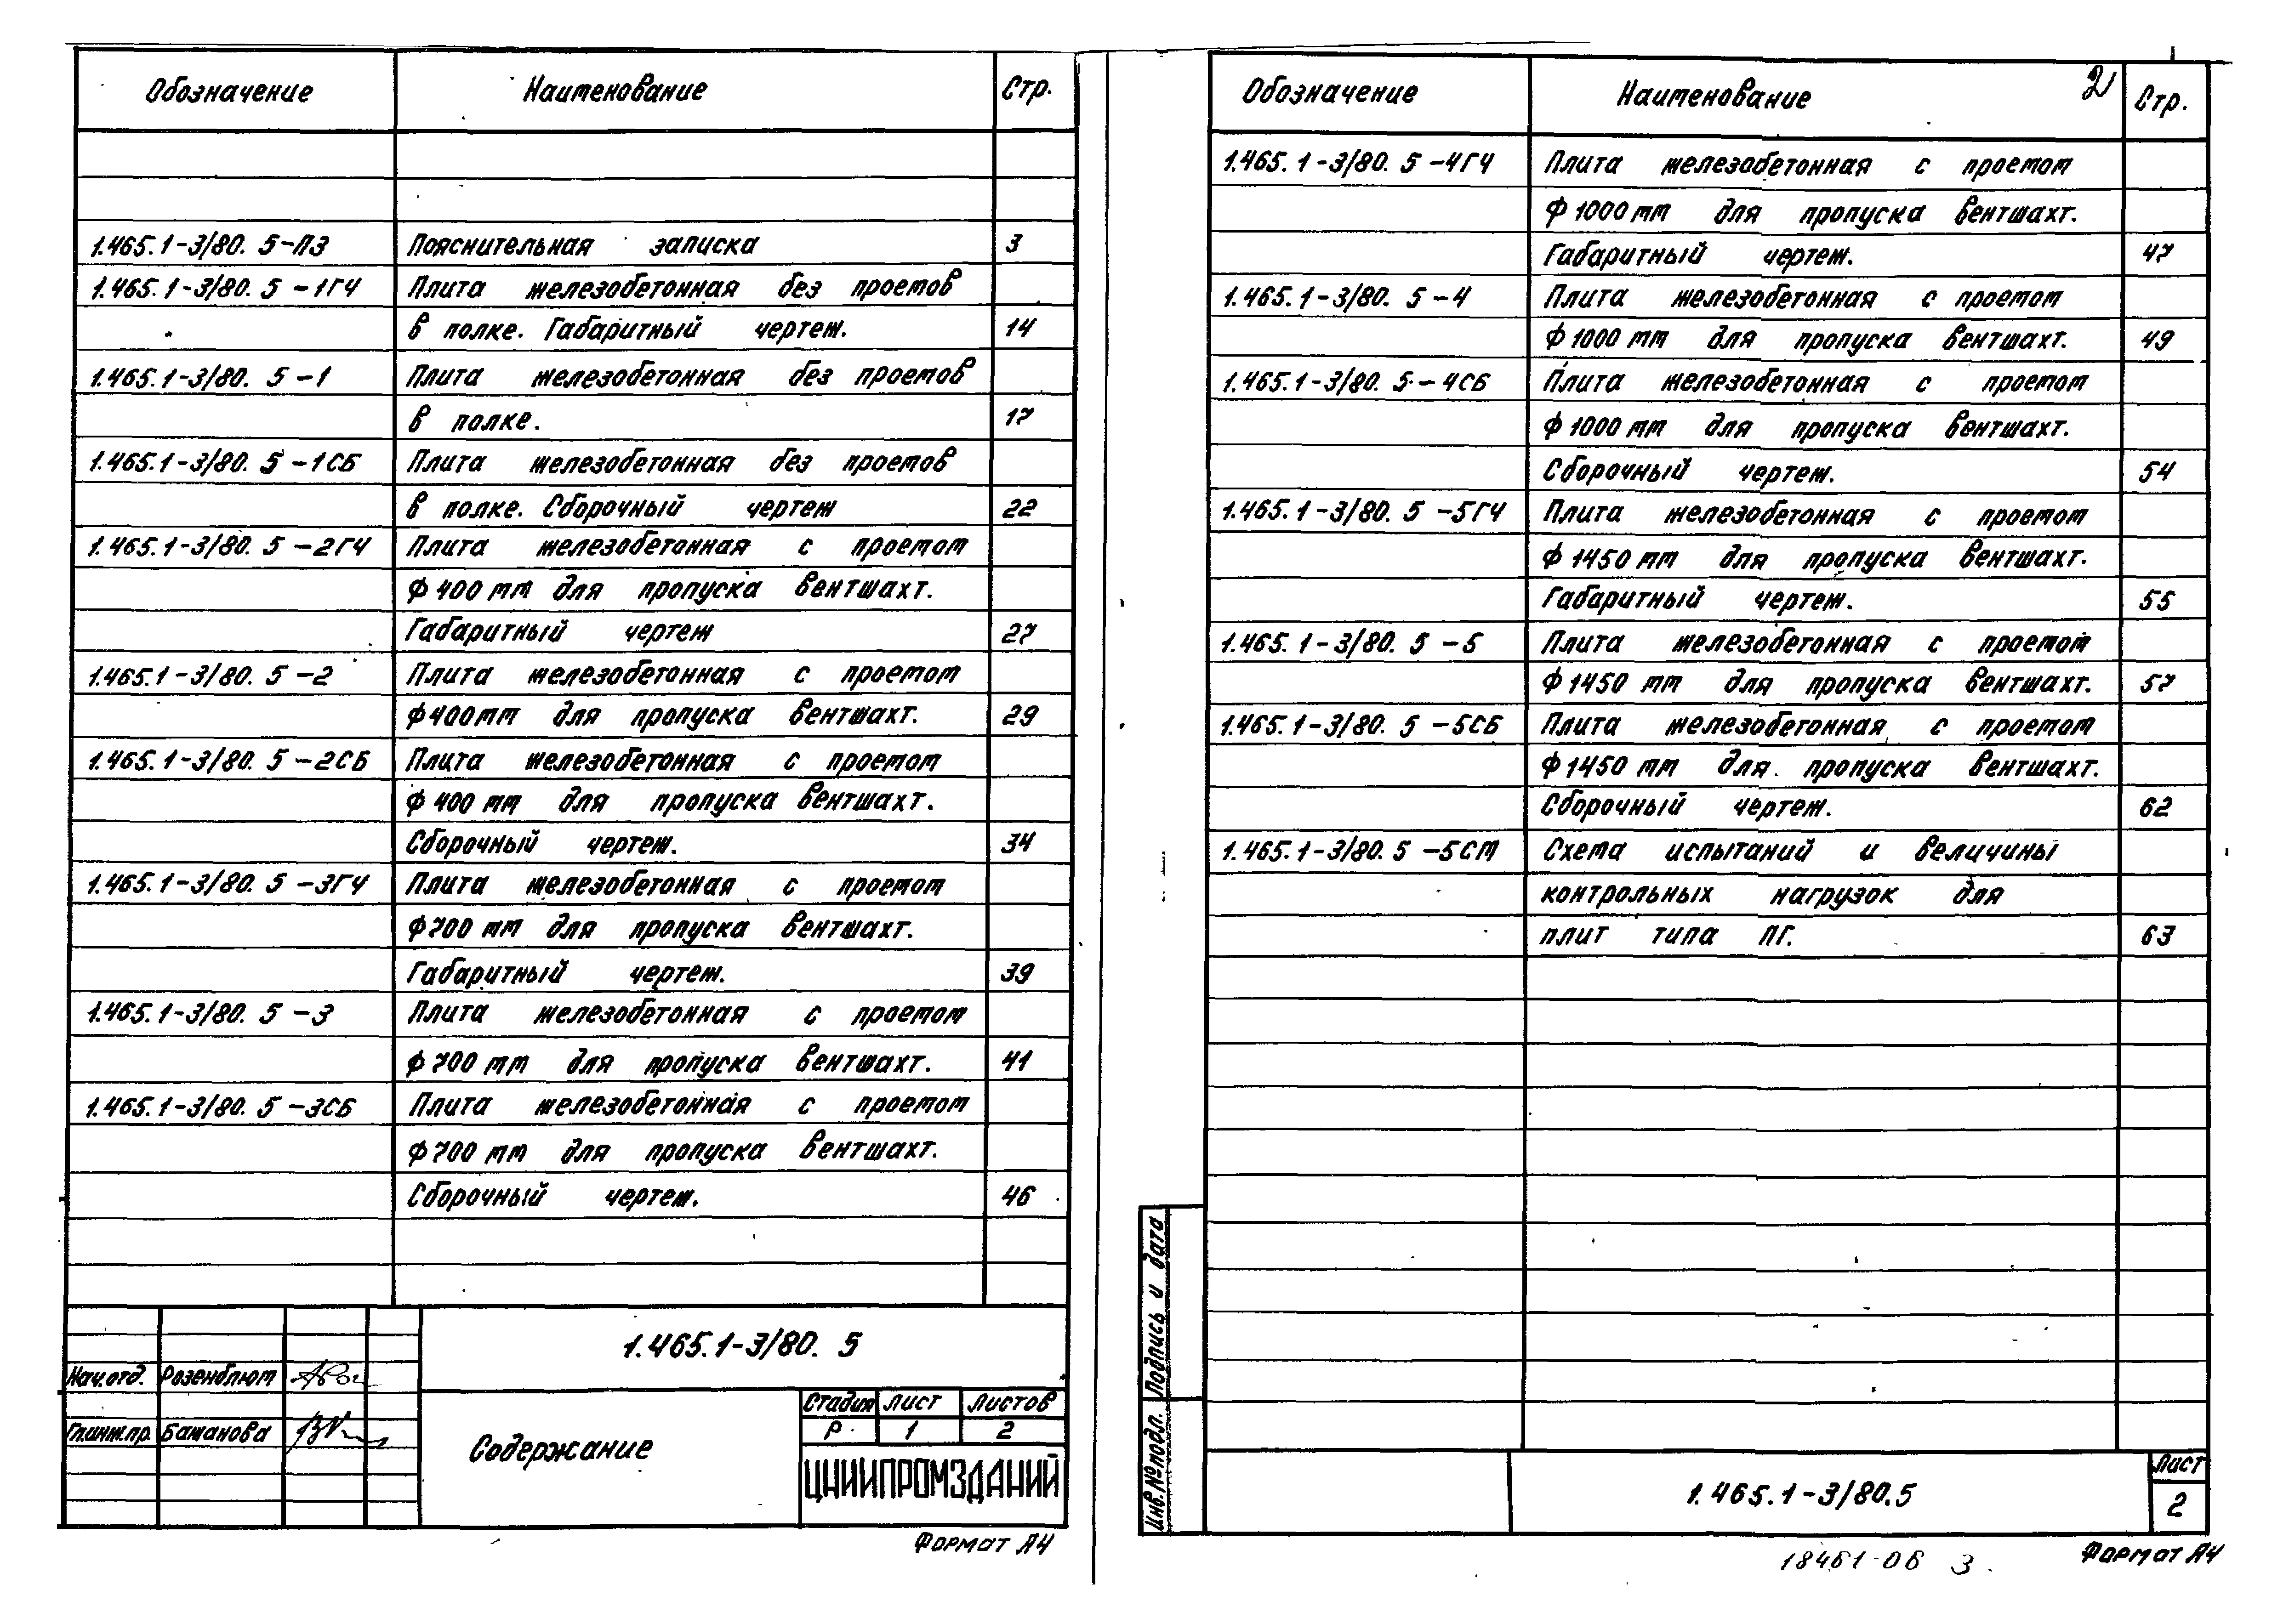 Обозначение Наименование Стр.
1.465.1-3/80. 5-ПЗ Пояснительная записка 3
1.465.1-3/80. 5-1ГЧ Плита железобетонная без проемов
в полке. Габаритный чертеж. 14
1.465.1-3/80. 5-1 Плита железобетонная без проемов
в полке. 17
1.465.1-3/80. 5-1СБ Плита железобетонная без проемов
в полке. Сборочный чертеж 22
1.465.1-3/80. 5-2ГЧ Плита железобетонная с проемом
ф 400 мм для пропуска вентшахт.
Габаритный чертеж 27
1.465.1-3/80. 5-2 Плита железобетонная с проемом
ф 400 мм для пропуска вентшахт. 29
1.465.1-3/80. 5-2СБ Плита железобетонная с проемом
ф 400 мм для пропуска вентшахт.
Сборочный чертеж. 34
1.465.1-3/80. 5-3ГЧ Плита железобетонная с проемом
ф 700 мм для пропуска вентшахт.
Габаритный чертеж. 39
1.465.1-3/80. 5-3 Плита железобетонная с проемом
ф 700 мм для пропуска вентшахт. 41
1.465.1-3/80. 5-3СБ Плита железобетонная с проемом
ф 700 мм для пропуска вентшахт.
Сборочный чертеж. 46
1.465.1-3/80. 5
Нач.отд. Розенблют
Гл.инж.пр. Бажанова
Содержание
Стадия Лист Листов
Р 1 2
ЦНИИПРОМЗДАНИЙ
Формат А4
Обозначение Наименование 2 Стр.
1.465.1-3/80. 5-4ГЧ Плита железобетонная с проемом
ф 1000 мм для пропуска вентшахт.
Габаритный чертеж. 47
1.465.1-3/80. 5-4 Плита железобетонная с проемом
ф 1000 мм для пропуска вентшахт. 49
1.465.1-3/80. 5-4СБ Плита железобетонная с проемом
ф 1000 мм для пропуска вентшахт.
Сборочный чертеж. 54
1.465.1-3/80. 5-5ГЧ Плита железобетонная с проемом
ф 1450 мм для пропуска вентшахт.
Габаритный чертеж. 55
1.465.1-3/80. 5-5 Плита железобетонная с проемом
ф 1450 мм для пропуска вентшахт. 57
1.465.1-3/80. 5-5СБ Плита железобетонная с проемом
ф 1450 мм для пропуска вентшахт.
Сборочный чертеж. 62
1.465.1-3/80. 5-5СМ Схема испытаний и величины
контрольных нагрузок для
плит типа ПГ. 63
Подпись и дата
Инв.№подл.
1.465.1-3/80.5
Лист
2
18461-06 3
Формат А4